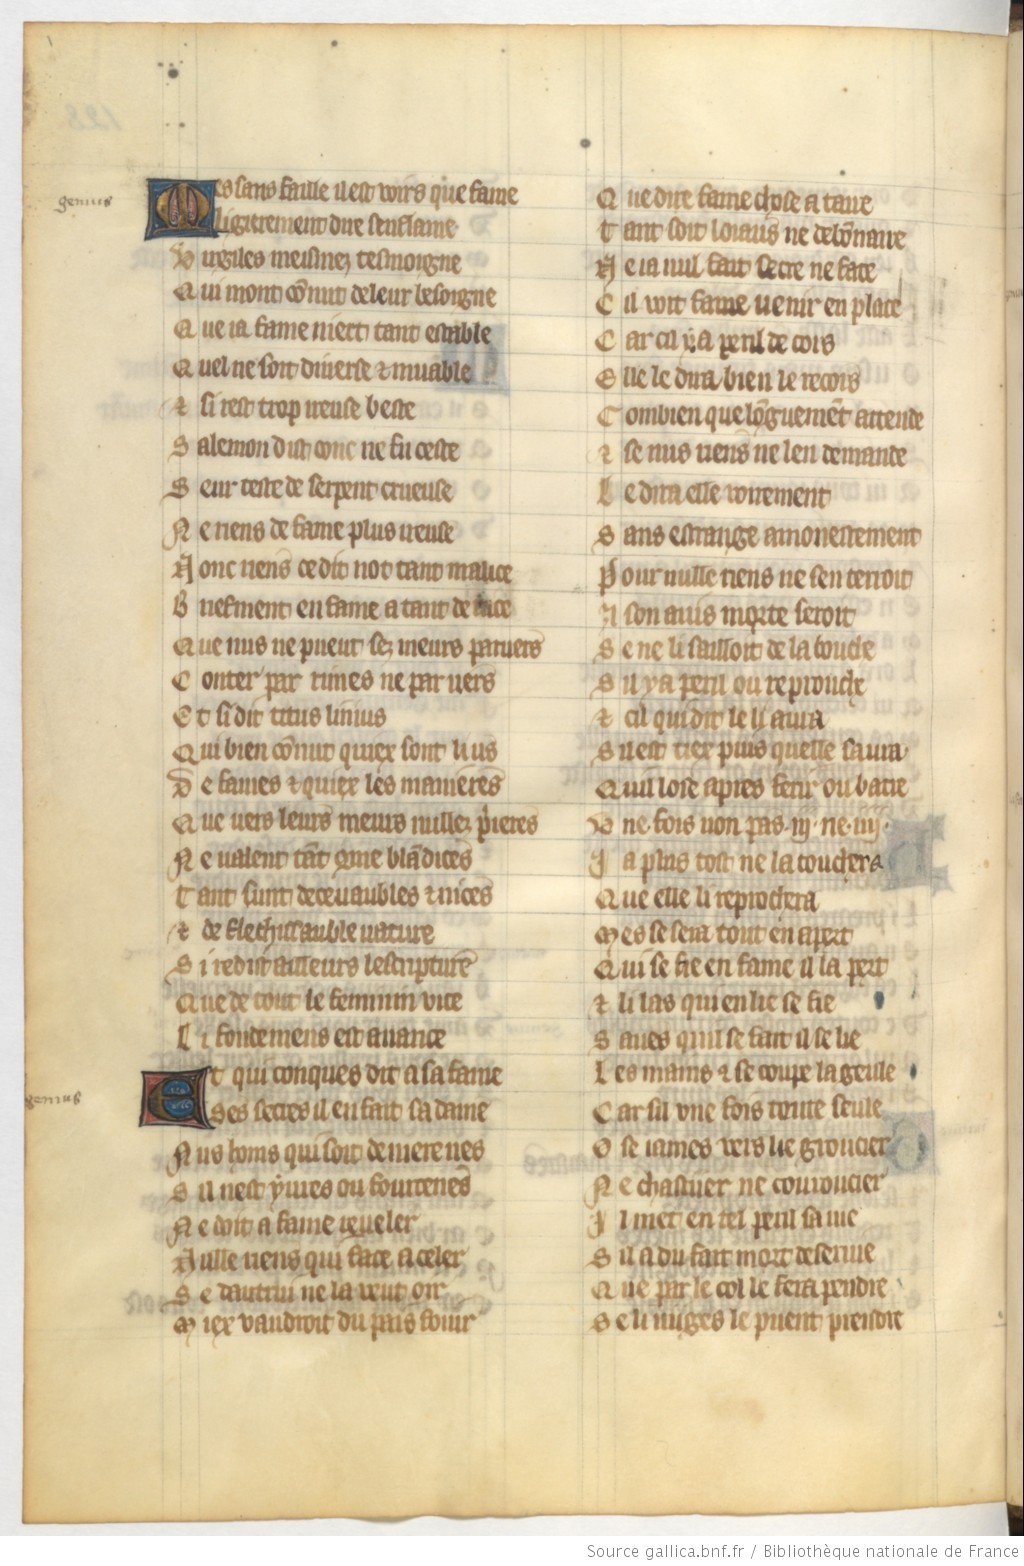 genius
Mes sans faille il est voirs que fame
Ligierement dire senflame
Virgiles meismez tesmoigne
Qui mont cōnut de leur besoigne
Que ia fame niert tant estable
Quel ne soit diuerse ⁊ muable
⁊ si rest trop ireuse beste
Salemon dist conc ne fu ceste
Seur teste de serpent crueuse
Ne riens de fame plus ireuse
Nonc riens ce dit not tant malice
Briefment en fame a tant de uice
Que nus ne pueut sez meurs paruers
Conter par rimes ne par uers
Et si dit titus liuius
Qui bien cōnut quiex sont li us
De fames ⁊ quiex les manieres
Que vers leurs meurs nullez p̄ieres
Ne ualent tāt 9me blādices
Tant sunt deceuaubles ⁊ nices
⁊ de flechissauble nature
Si redit ailleurs lescripture
Que de tout le feminin vice
Li fondemens est auarice
genius
Et qui conques dit a sa fame
Ses secres il en fait sa dame
Nus homs qui soit de mere nes
Sil nest yures ou fourcenes
Ne doit a fame reueler
Nulle riens qui face a celer
Se dautrui ne la veut oir
Miex vaudroit du pais fouir
Que dire fame chose a taire
Tant soit loiaus ne debōnaire
Ne ia nul fait secre ne face
Cil voit fame uenir en place
Car cil y a peril de cors
Elle le dira bien le recors
Combien que lōguemēt attende
⁊ se nus riens ne len demande
Le dira elle voirement
Sans estrange amonestement
Pour nulle riens ne sen teroit
A son auis morte seroit
Se ne li sailloit de la bouche
Sil y a peril ou reprouche
⁊ cil qui dit le li aura
Sil est tiex puis quelle saura
Quil lose apres ferir ou batre
Vne fois non pas .iij. ne .iiij.
Ja plus tost ne la touchera
Que elle li reprochera
Mes se sera tout en apert
Qui se fie en fame il la pert
⁊ li las qui en lie se fie
Saues quil se fait il se lie
Les mains ⁊ se coupe la geule
Car sil vne fois toute seule
Ose iames vers lie groucier
Ne chastier ne couroucier
Jl met en tel peril sa uie
Sil a du fait mort deseruie
Que par le col le fera pendre
Se li iuges le puent prendre
Source gallica.bnf.fr / Bibliothèque nationale de France